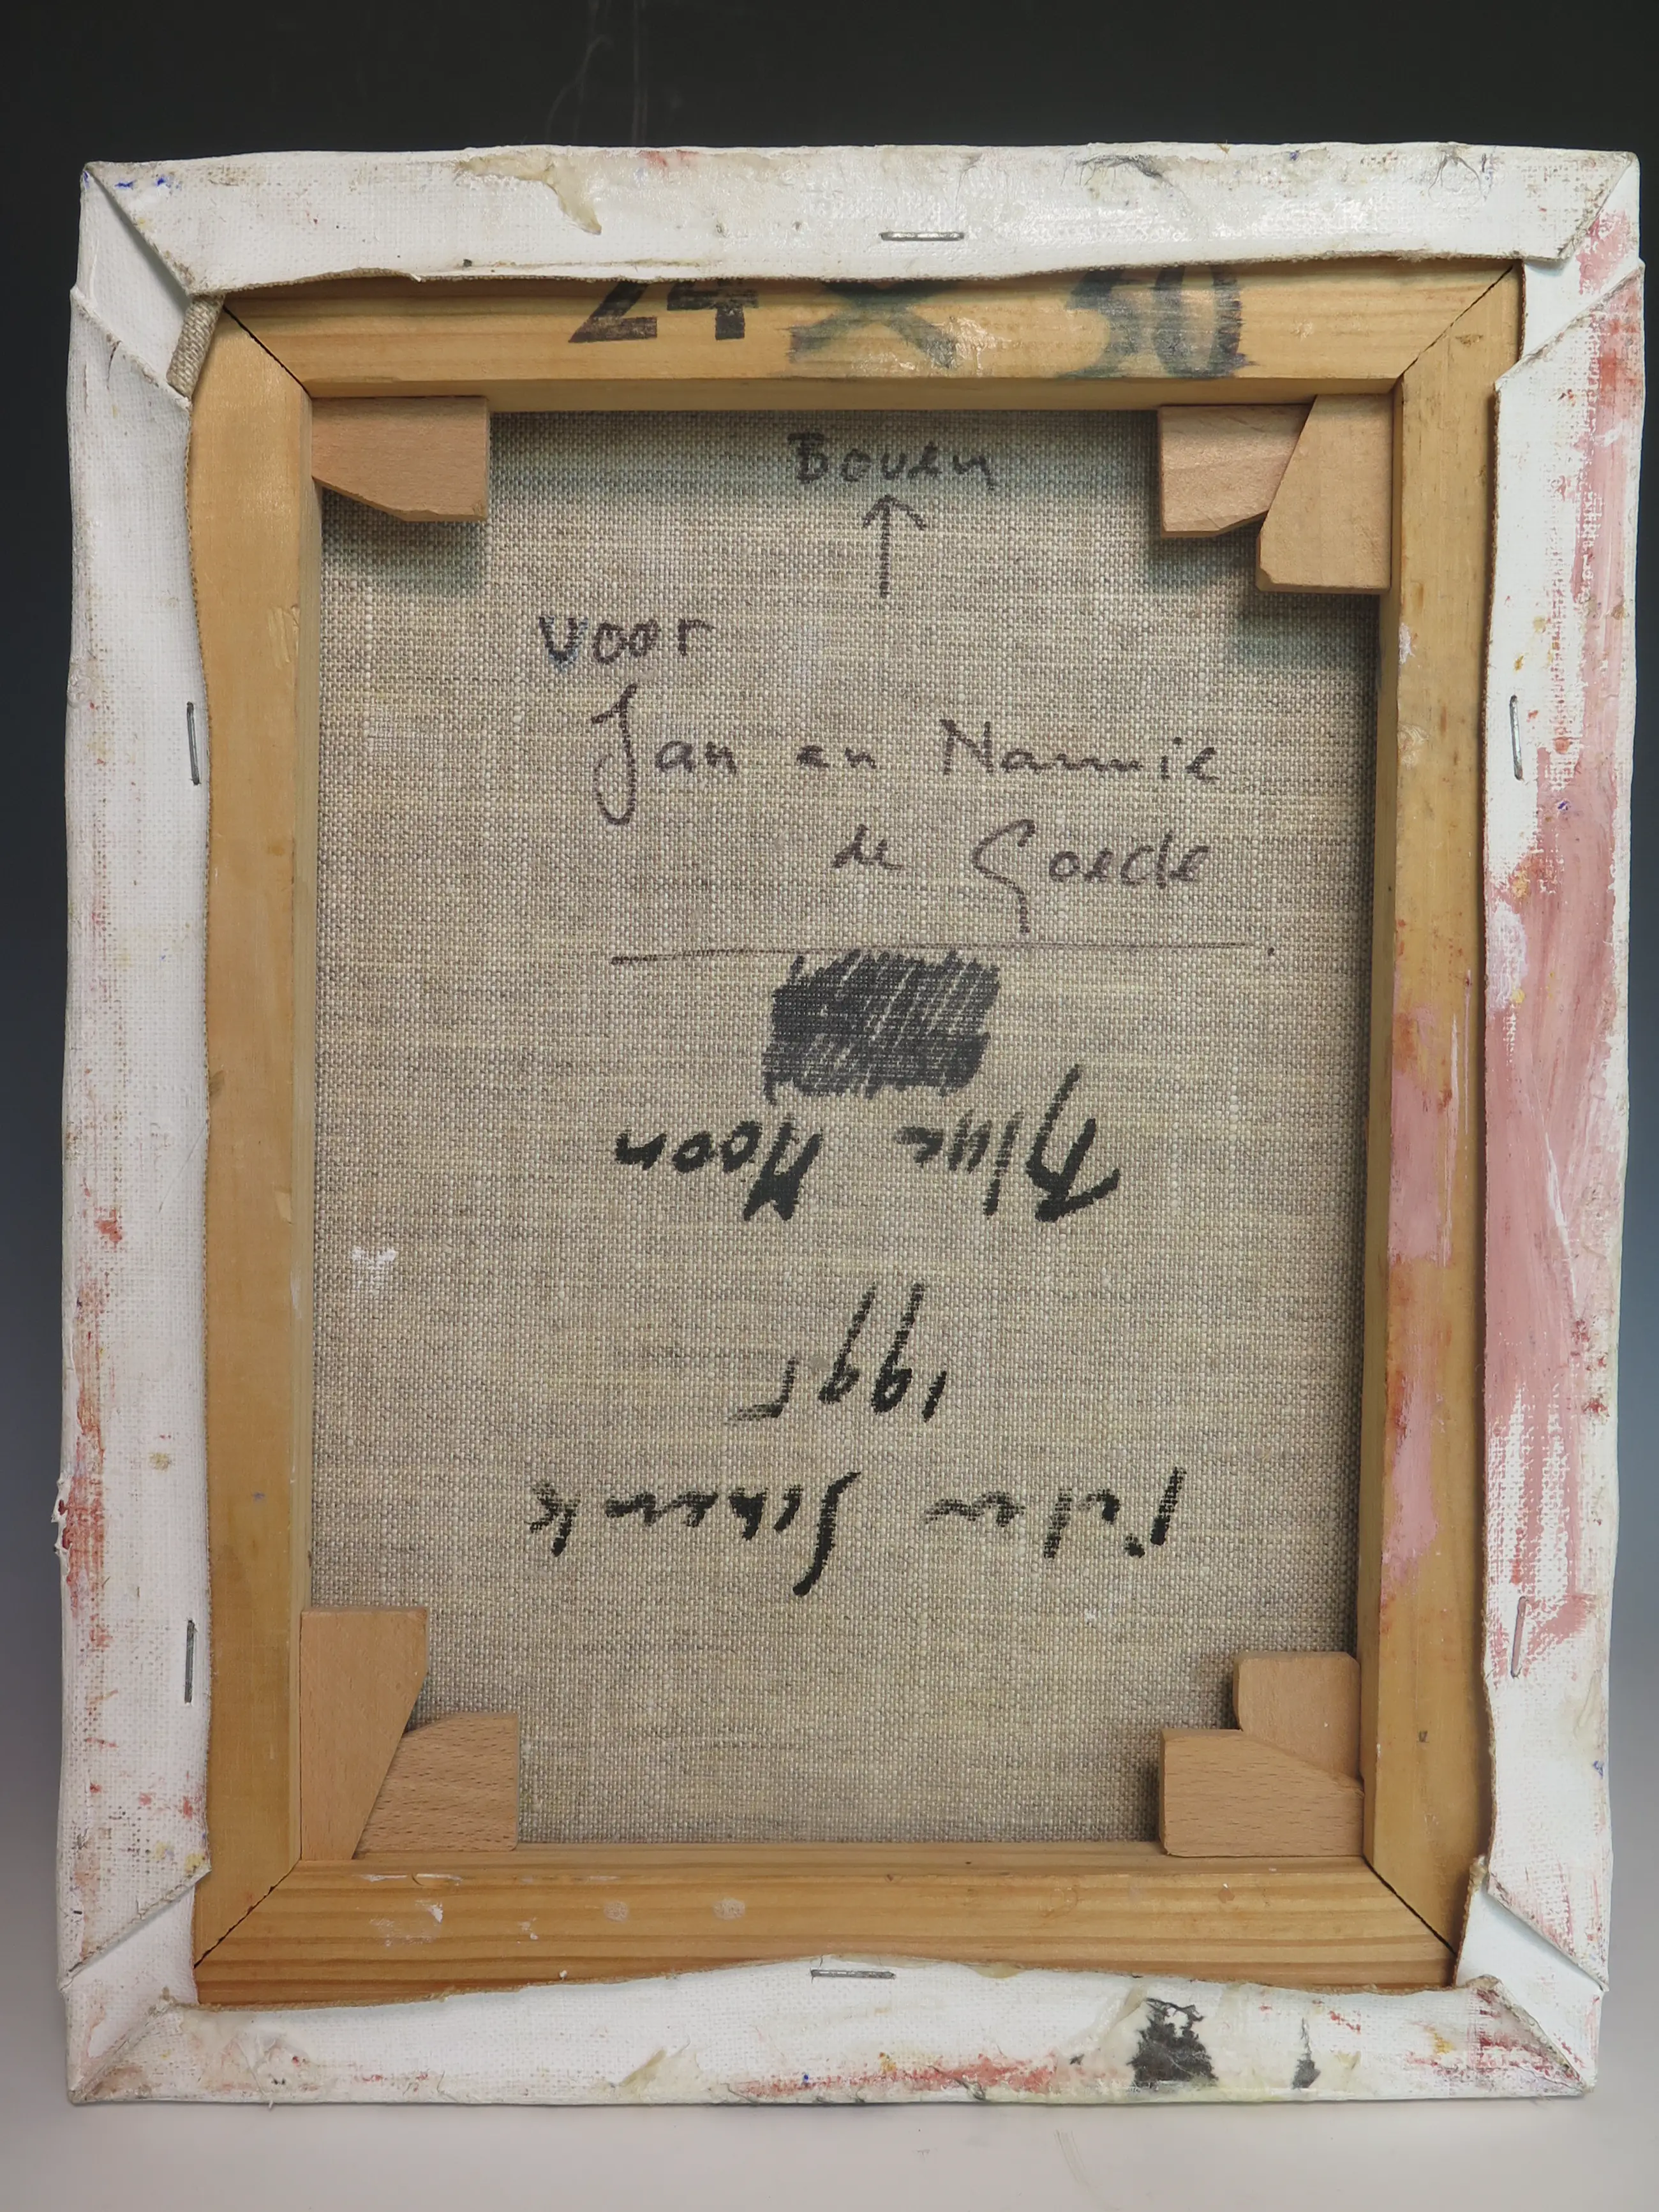 24 x 30
Boven
voor
Jan en Nannie
de Goede
Blue Moon
1995
Peter Schenk